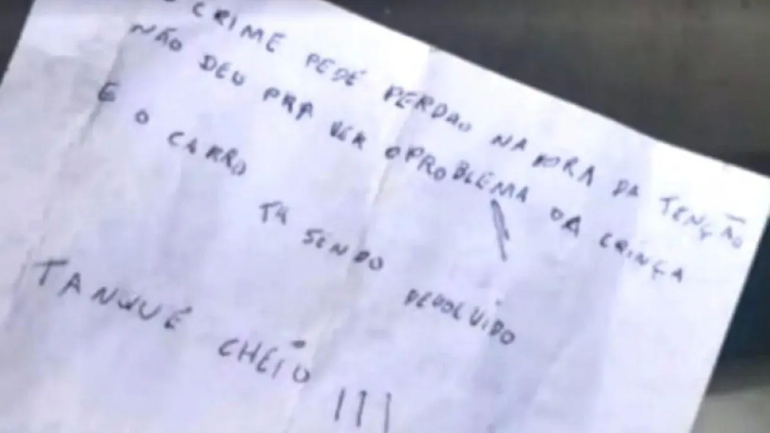 O CRIME PEDE PERDÃO NA ORA DA TENÇÃO
NÃO DEU PRA VER O PROBLEMA DA CRINÇA
E O CARRO TÁ SENDO DEVOLVIDO
TANQUE CHEIO !!!